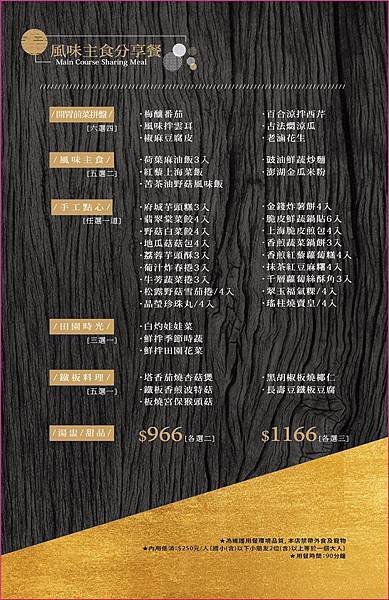 風味主食分享餐
Main Course Sharing Meal
/開胃前菜拼盤/
[六選四]
·梅釀番茄
·風味拌雲耳
·椒麻豆腐皮
·百合涼拌西芹
·古法燜涼瓜
·老滷花生
/風味主食/
[五選二]
·荷葉麻油飯3人
·紅藜上海菜飯
·苦茶油野菇風味飯
·豉油鮮蔬炒麵
·澎湖金瓜米粉
/手工點心/
[任選一道]
·府城芋頭糕3入
·翡翠堂菜餃4入
·野菇白菜餃4入
·地瓜菇菇包4入
·荔蓉芋頭酥3入
·葡汁炸春捲3入
·牛蒡蔬菜捲3入
·松露野菇雪茄捲/4入
·晶瑩珍珠丸/4入
·金錢炸薯餅4入
·脆皮鮮蔬鍋貼6入
·上海脆皮煎包4入
·香煎蔬菜鍋餅3入
·香煎紅藜蘿蔔糕4入
·抹茶紅豆麻糬4入
·千層蘿蔔絲酥角3入
·翠玉福氣粿/4入
·瑤柱燒賣皇/4入
/田園時光/
[三選一]
·白灼娃娃菜
·鮮拌季節時蔬
·鮮拌田園花菜
/鐵板料理/
[五選一]
·塔香茄燒杏菇煲
·鐵板香煎波特菇
·板燒宮保猴頭菇
·黑胡椒板燒椰仁
·長壽豆鐵板豆腐
/湯盅/甜品/
$966[各選二]
$1166[各選三]
★為維護用餐環境品質,本店禁帶外食及寵物
★內用低消:$250元/人[國小(含)以下小朋友2位(含)以上等於一個大人]
★用餐時間:90分鐘